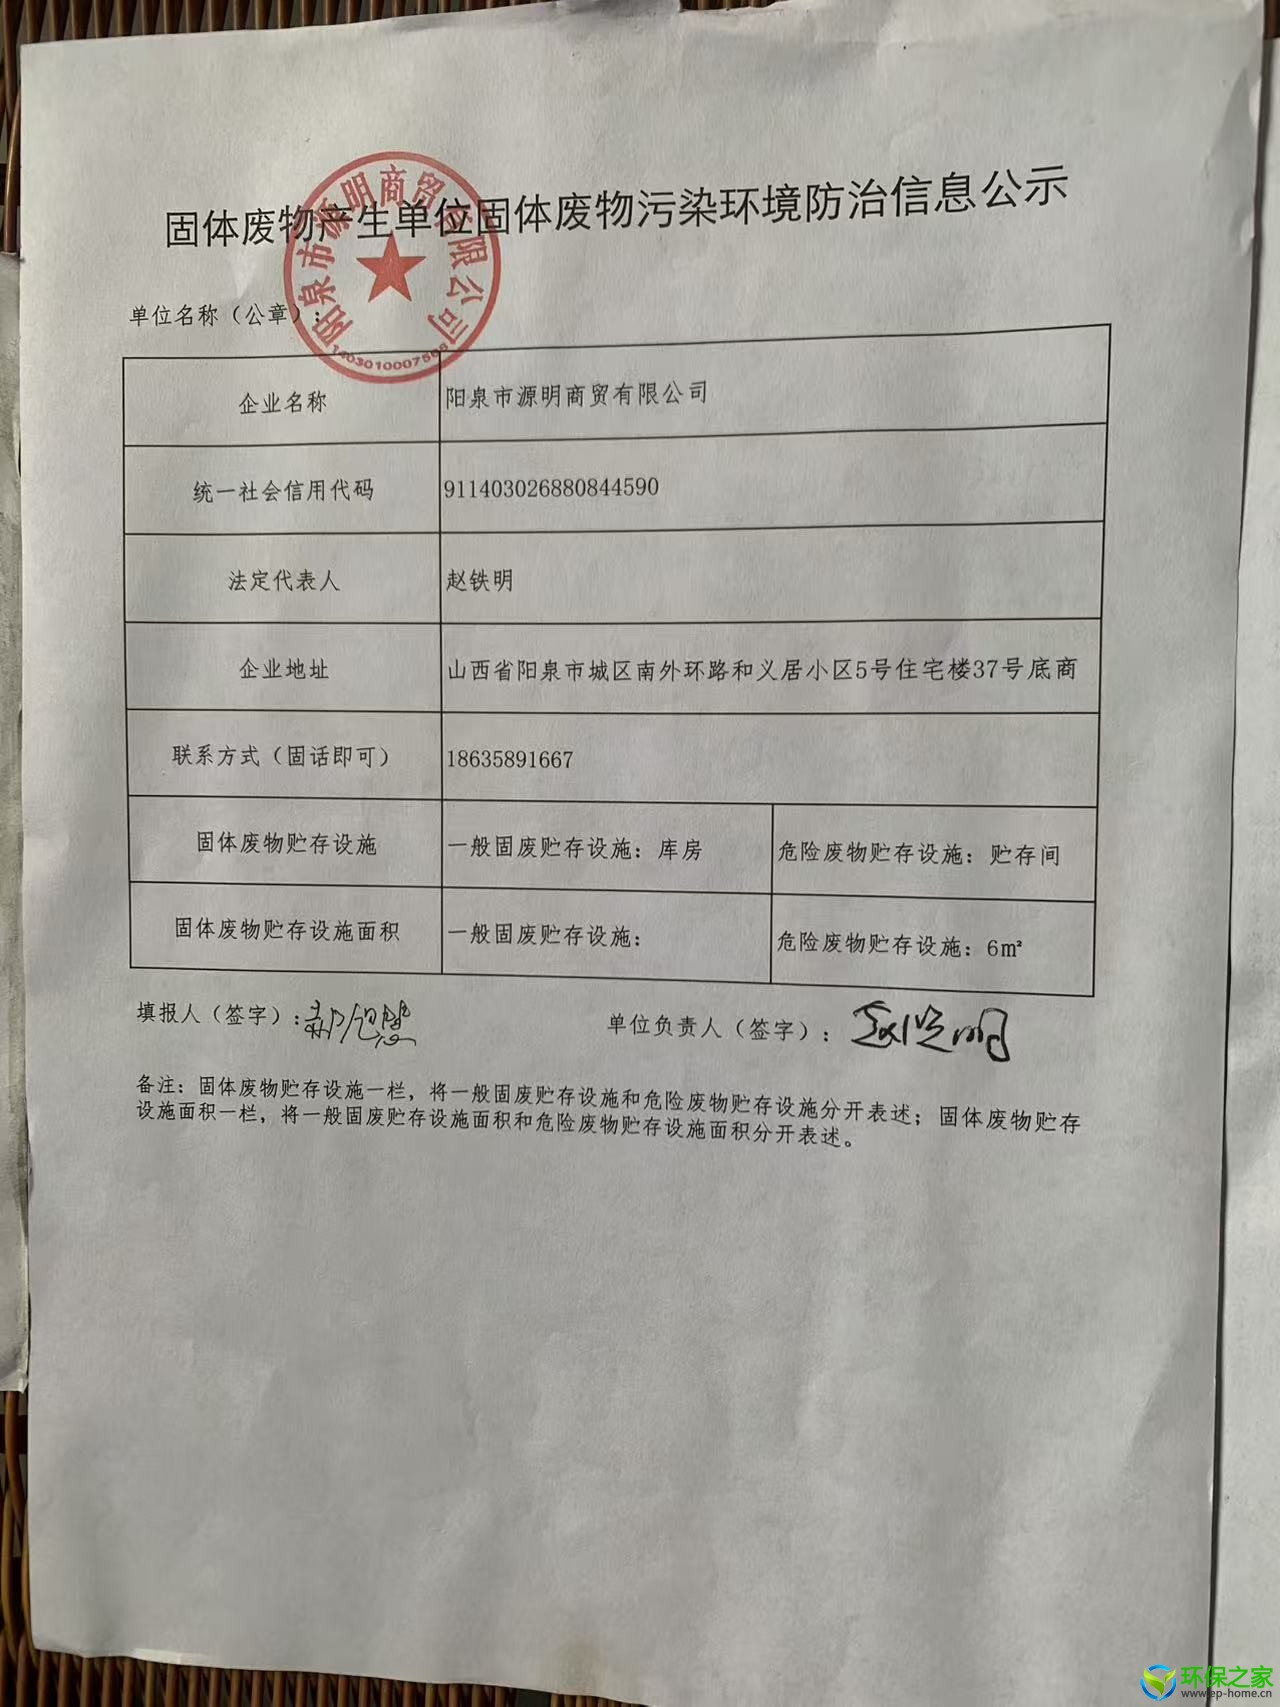 固体废物产生单位固体废物污染环境防治信息公示
阳泉市源明商贸有限公司
单位名称（公章）：
企业名称
阳泉市源明商贸有限公司
统一社会信用代码
911403026880844590
法定代表人
赵铁明
企业地址
山西省阳泉市城区南外环路和义居小区5号住宅楼37号底商
联系方式（固话即可）
18635891667
固体废物贮存设施
一般固废贮存设施：库房
危险废物贮存设施：贮存间
固体废物贮存设施面积
一般固废贮存设施：
危险废物贮存设施：6㎡
填报人（签字）：
单位负责人（签字）：
备注：固体废物贮存设施一栏，将一般固废贮存设施和危险废物贮存设施分开表述；固体废物贮存
设施面积一栏，将一般固废贮存设施面积和危险废物贮存设施面积分开表述。
环保之家
www.ep-home.cn